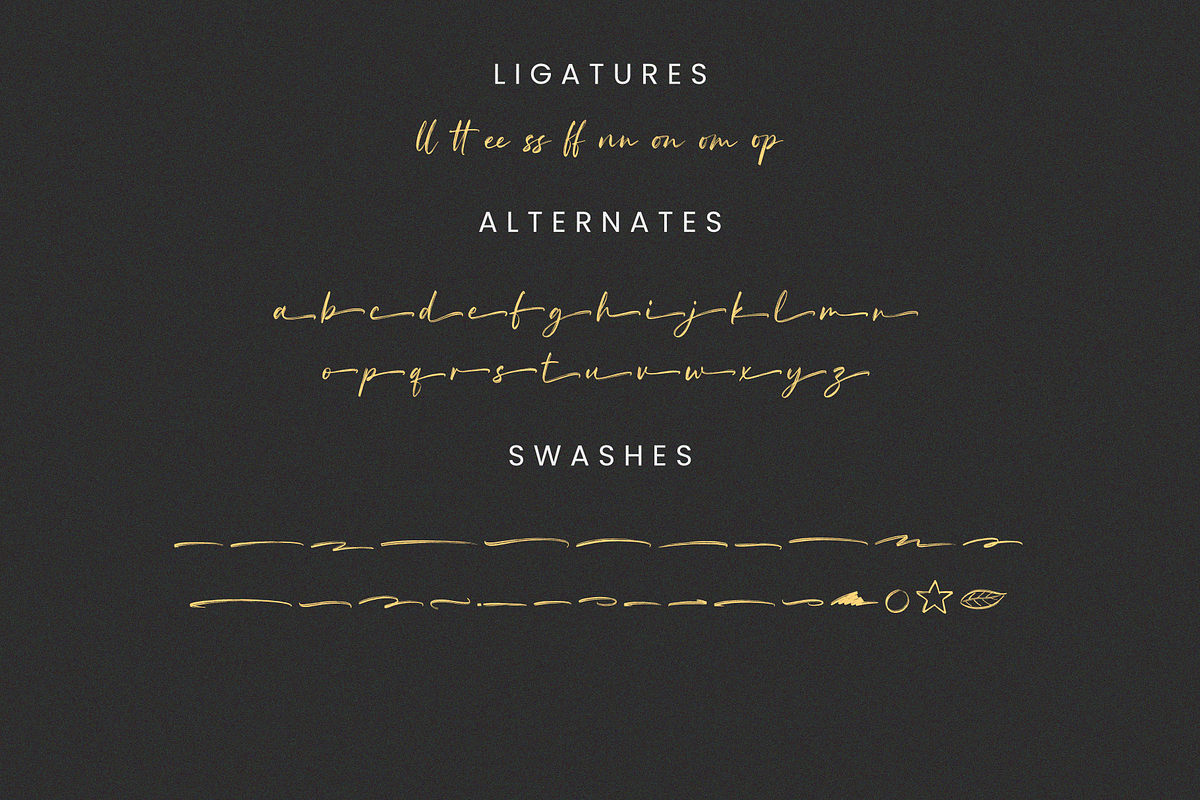 LIGATURES
ll tt ee ss ff nn on om op
ALTERNATES
a b c d e f g h i j k l m n
o p q r s t u v w x y z
SWASHES